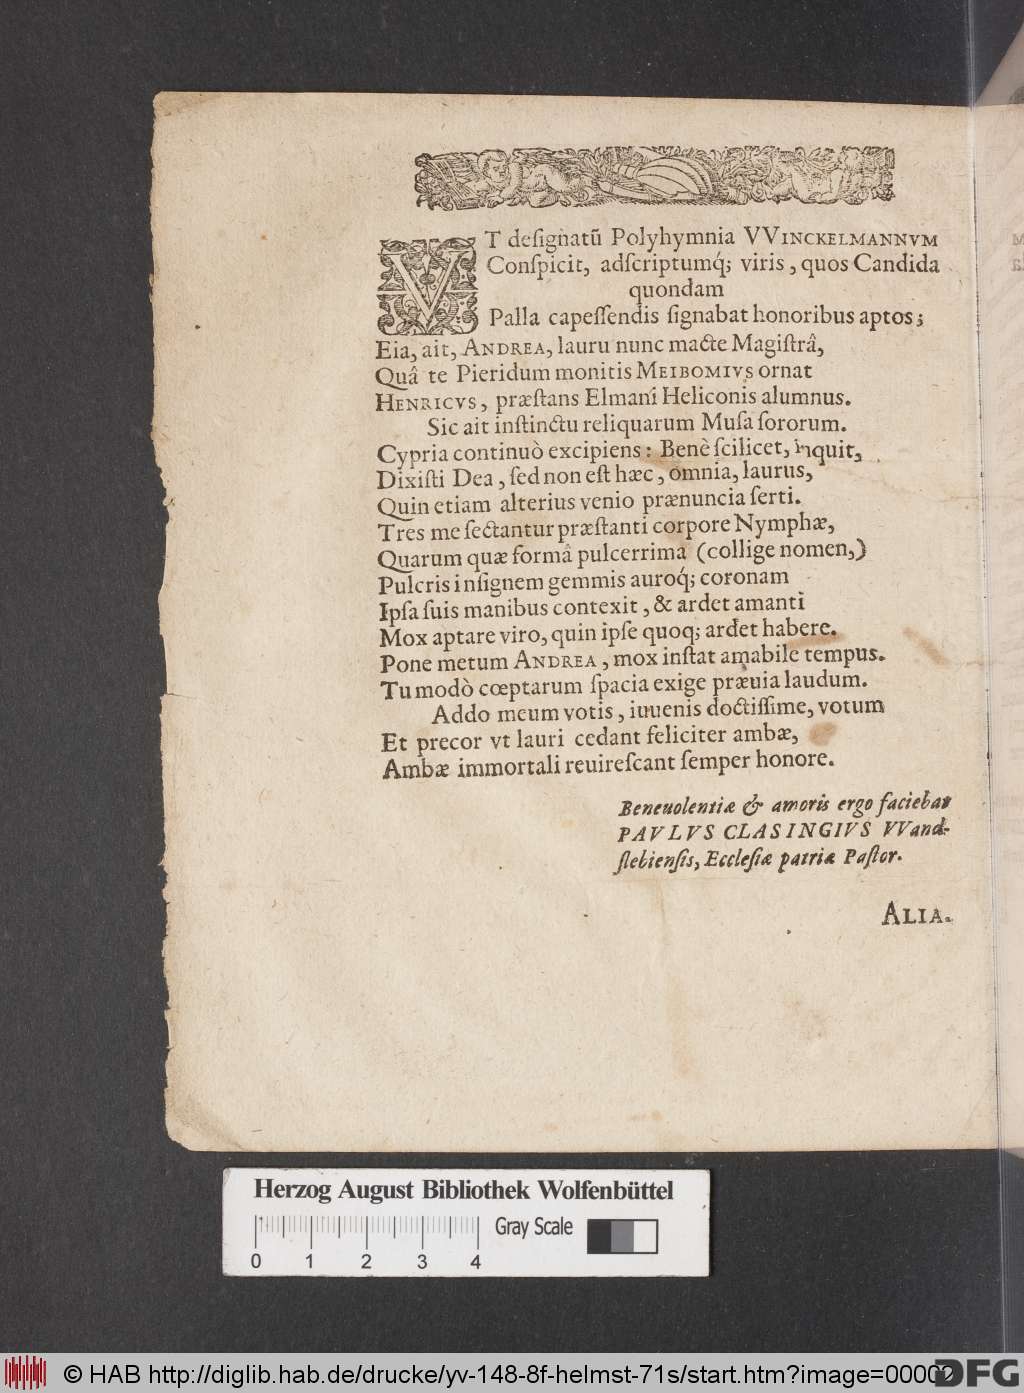 VT deſignatū Polyhymnia VVINCKELMANNVM
Conſpicit, adſcriptumq́; viris, quos Candida
quondam
Palla capeſſendis ſignabat honoribus aptos;
Eia, ait, ANDREA, lauru nunc macte Magiſtrâ,
Quâ te Pieridum monitis MEIBOMIVS ornat
HENRICVS, præſtans Elmani Heliconis alumnus.
Sic ait inſtinctu reliquarum Muſa ſororum.
Cypria continuò excipiens: Benè ſcilicet, inquit,
Dixiſti Dea, ſed non eſt hæc, omnia, laurus,
Quin etiam alterius venio prænuncia ſerti.
Tres me ſectantur præſtanti corpore Nymphæ,
Quarum quæ formâ pulcerrima (collige nomen,)
Pulcris inſignem gemmis auroq́; coronam
Ipſa ſuis manibus contexit, & ardet amanti
Mox aptare viro, quin ipſe quoq; ardet habere.
Pone metum ANDREA, mox inſtat amabile tempus.
Tu modò cœptarum ſpacia exige præuia laudum.
Addo meum votis, iuuenis doctiſſime, votum
Et precor vt lauri cedant feliciter ambæ,
Ambæ immortali reuireſcant ſemper honore.
Beneuolentiæ & amoris ergo faciebat
PAVLVS CLASINGIVS VVand-
ſlebienſis, Eccleſiæ patriæ Paſtor.
ALIA.
Herzog August Bibliothek Wolfenbüttel
Gray Scale
0 1 2 3 4
© HAB http://diglib.hab.de/drucke/yv-148-8f-helmst-71s/start.htm?image=00002
DFG